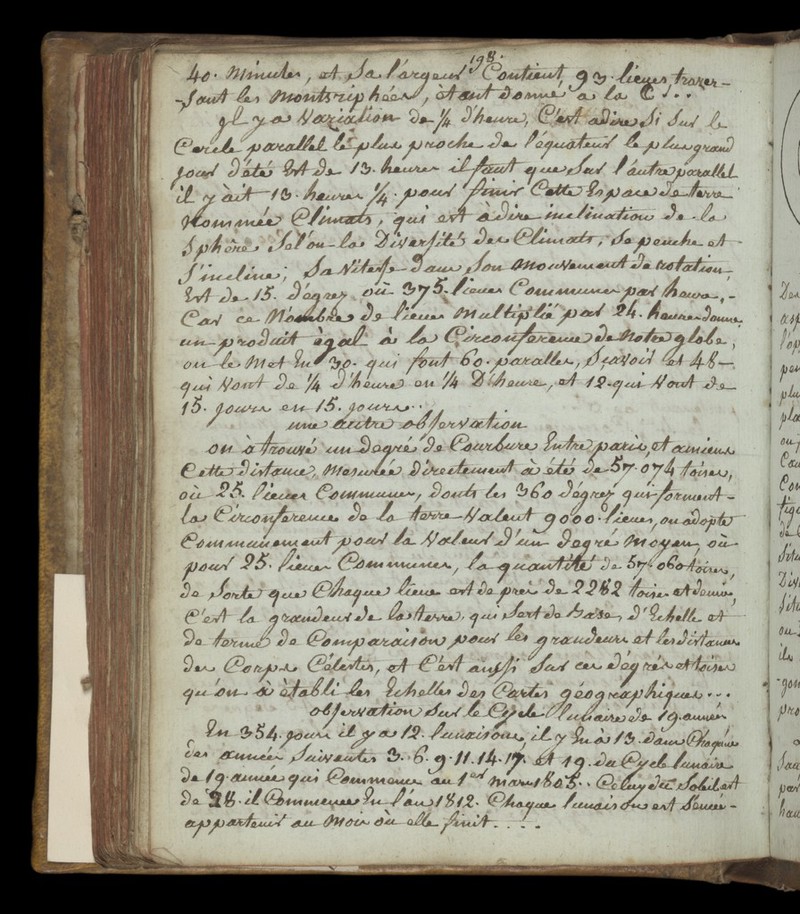 198.
40. Minutes, et Sa largeur Contient 93. lieues traver-
-sant les Monts riphées, étant donné a la C...
Jl y a Variation de ¼ d'heure, C'est adire Si Sur le
Cercle parallel le plus proche de l'équateur le plus grand
jour d'été Est de 13. heures il faut que Sur l'autre parallel
il y àit 13. heures ¼. pour finir Cette Espace de terre
Nommée Climats, qui est àdire inclination de la
Sphère Sélon la Diversités des Climats, Se penche et
S'incline; Sa Vitesse dans Son Mouvement de rotation,
Est de 15. dégrez où 375. lieues Communes par heure, -
Car ce Nombre de lieues Multiplié par 24. heures donne
un produit ègal à la Circonference de Notre globe,
on le Met En 30. qui font 60. paralles, Sçavoir et 48-
qui Vont de ¼ d'heure en ¼ D'heure, et 12. qui Vont de
15. jours en 15. jours..
une autre observation
on à trouvé un dégré de Courbure Entre paris, et amiens
Cette distance, Mesurée directement à été de 57.074 toises,
où 25. lieues Communes, donts les 360 dégrez qui forment -
la Circonference de la terre Valent 9000. lieues, on adopte
Communement pour la Valeur d'un degré Moyen, où
pour 25. lieues Communes, la quantité de 57.060 toises,
de Sorte que Chaque lieue est de près de 2282 toises et demie,
C'est la grandeur de la terre, qui Sert de Base, d'Echelle et
de terme de Comparaison pour les grandeurs et les distances
des Corps Célestes, et C'est aussi Sur ces dégrés et toises
qu'on à ètabli les Echelles des Cartes géographiques...
observation Sur le Cycle lunaire de 19. années
En 354. jours il y a 12. lunaisons, il y En a 13. dans Chaqune
des années Suivantes 3. 6. 9. 11. 14. 17. et 19. du Cycle lunaire
de 19 années qui Commence au 1er Mars 1805.. Celuy du Soleil est
de 28. il Commence En l'an 1812. Chaque lunaison est Sencée -
appartenir au Mois où elle finit....